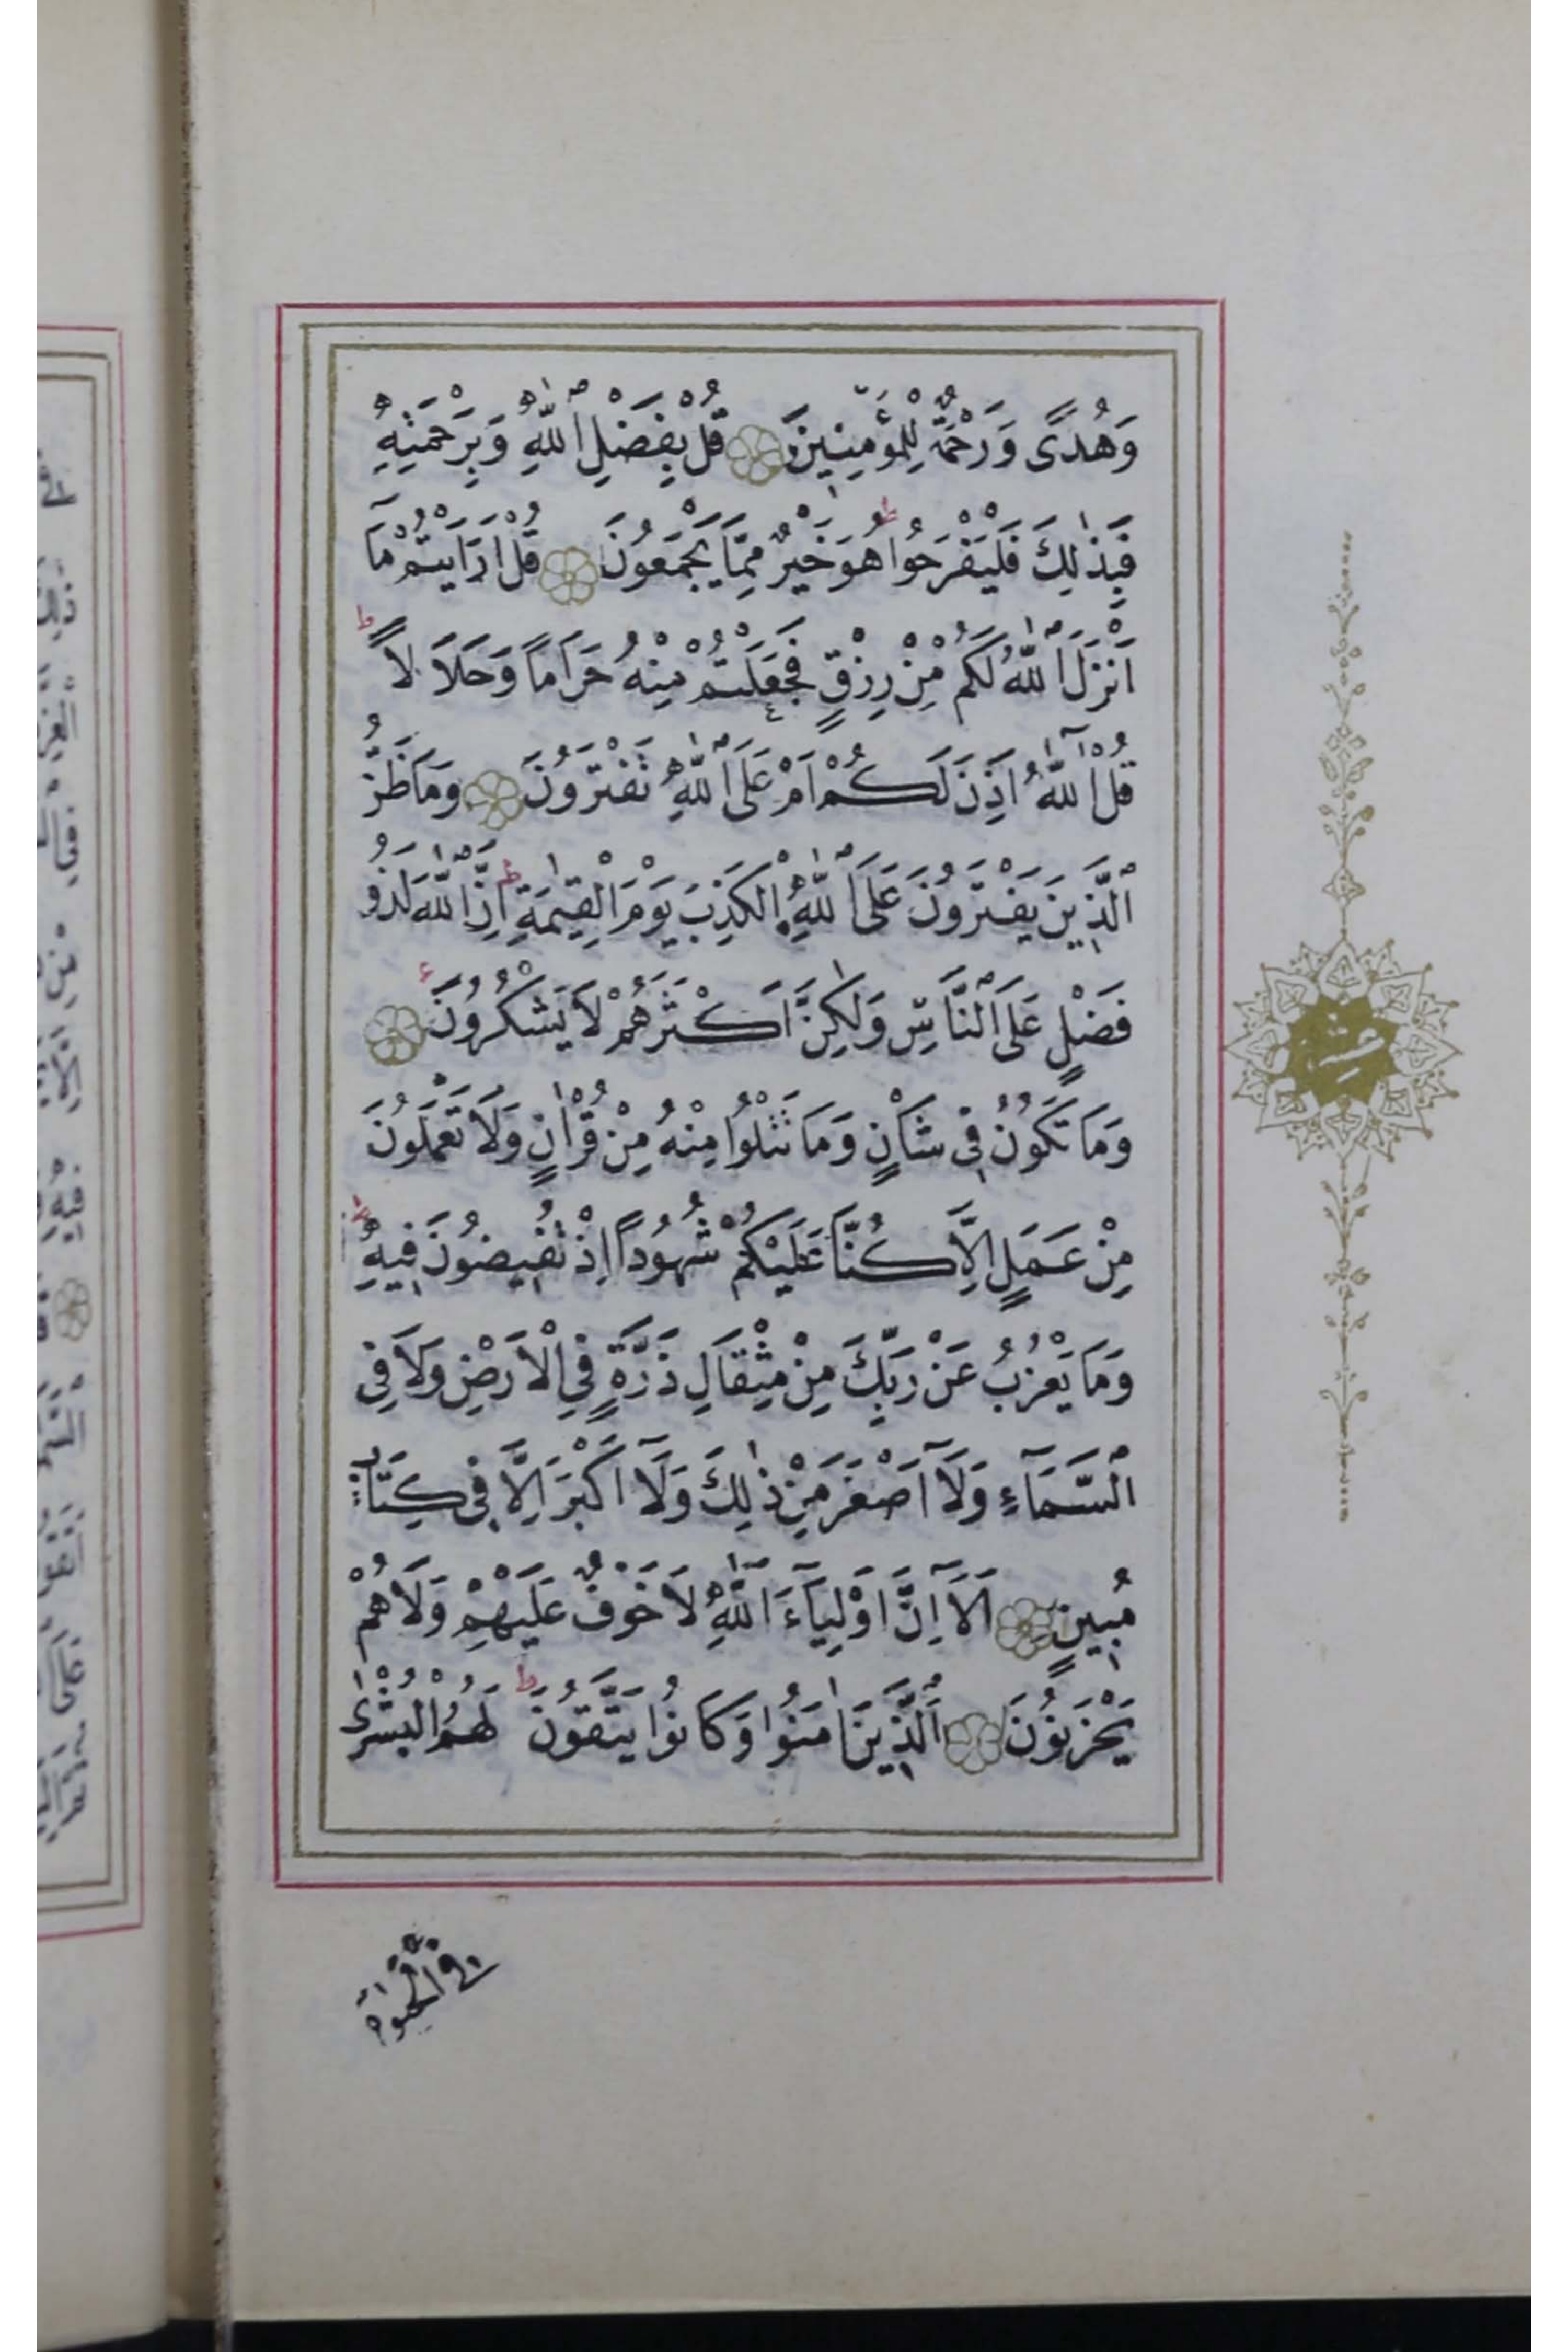 وَهُدًى وَرَحْمَةٌ لِلْمُؤْمِنِينَ قُلْ بِفَضْلِ اللّٰهِ وَبِرَحْمَتِهِ
فَبِذٰلِكَ فَلْيَفْرَحُوا ط هُوَ خَيْرٌ مِمَّا يَجْمَعُونَ قُلْ اَرَاَيْتُمْ مَٓا
اَنْزَلَ اللّٰهُ لَكُمْ مِنْ رِزْقٍ فَجَعَلْتُمْ مِنْهُ حَرَاماً وَحَلَالاً ط
قُلْ آٰللّٰهُ اَذِنَ لَكُمْ اَمْ عَلَى اللّٰهِ تَفْتَرُونَ وَمَا ظَنُّ
الَّذِينَ يَفْتَرُونَ عَلَى اللّٰهِ الْكَذِبَ يَوْمَ الْقِيٰمَةِ ط اِنَّ اللّٰهَ لَذُو
فَضْلٍ عَلَى النَّاسِ وَلٰكِنَّ اَكْثَرَهُمْ لَا يَشْكُرُونَ ع
وَمَا تَكُونُ فِي شَاْنٍ وَمَا تَتْلُوا مِنْهُ مِنْ قُرْاٰنٍ وَلَا تَعْمَلُونَ
مِنْ عَمَلٍ اِلَّا كُنَّا عَلَيْكُمْ شُهُوداً اِذْ تُفِيضُونَ فِيهِ ط
وَمَا يَعْزُبُ عَنْ رَبِّكَ مِنْ مِثْقَالِ ذَرَّةٍ فِي الْاَرْضِ وَلَا فِي
السَّمَٓاءِ وَلَٓا اَصْغَرَ مِنْ ذٰلِكَ وَلَٓا اَكْبَرَ اِلَّا فِي كِتَابٍ
مُبِينٍ اَلَٓا اِنَّ اَوْلِيَٓاءَ اللّٰهِ لَا خَوْفٌ عَلَيْهِمْ وَلَا هُمْ
يَحْزَنُونَ اَلَّذِينَ اٰمَنُوا وَكَانُوا يَتَّقُونَ ط لَهُمُ الْبُشْرٰى
فِي الْحَيٰوةِ